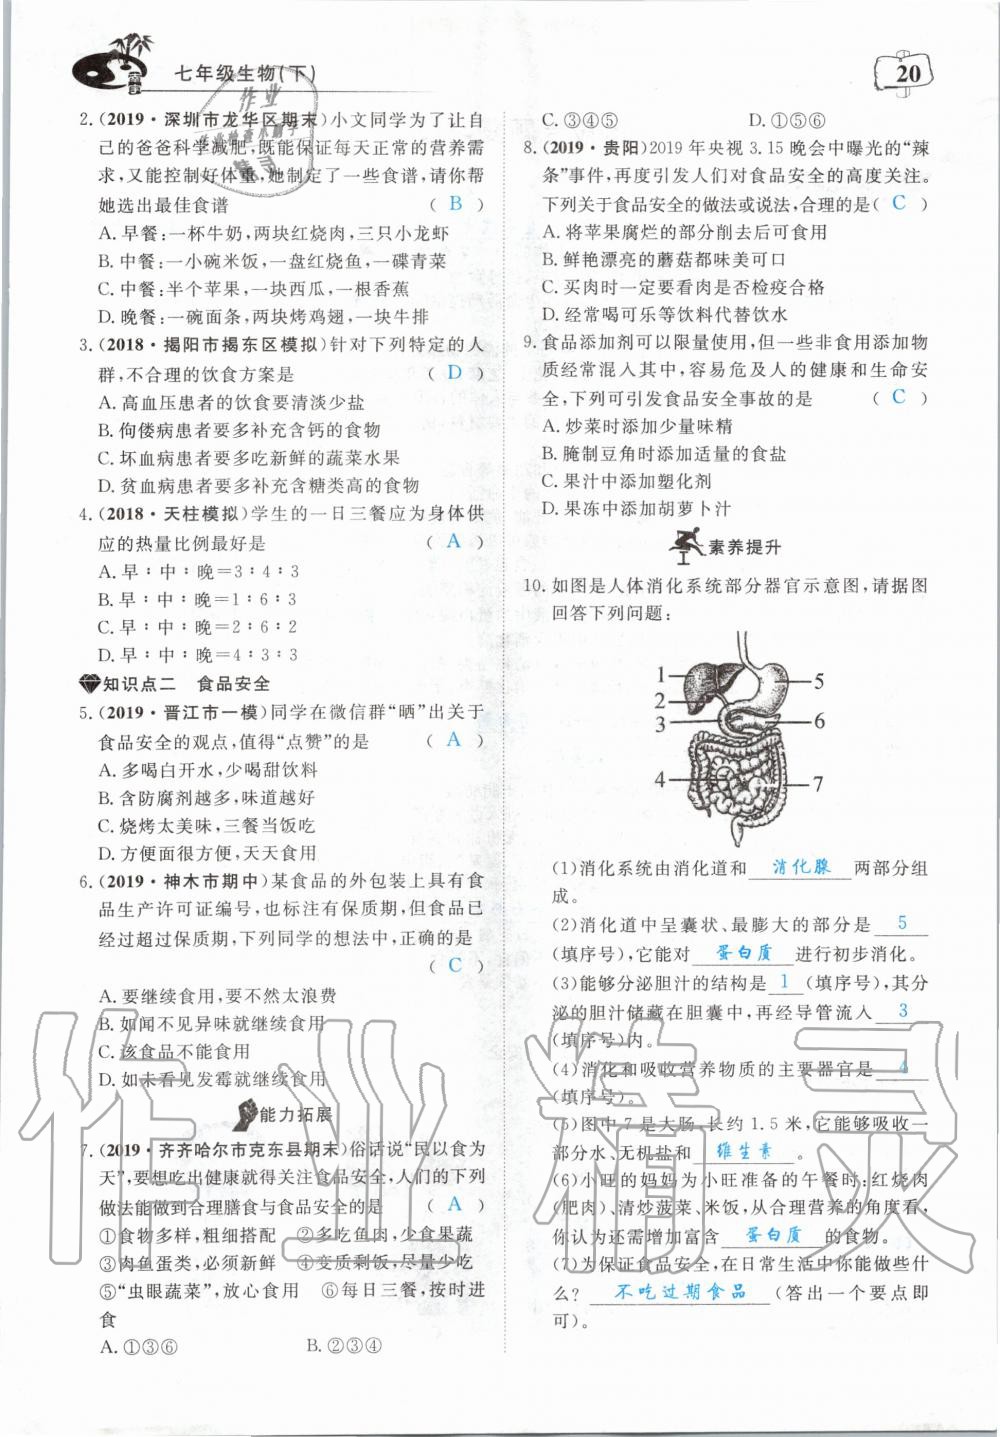 七年级生物(下)
20
2.(2019·深圳市龙华区期末)小文同学为了让自
己的爸爸科学减肥,既能保证每天正常的营养需
求,又能控制好体重,她制定了一些食谱,请你帮
她选出最佳食谱 ( B )
A.早餐:一杯牛奶,两块红烧肉,三只小龙虾
B.中餐:一小碗米饭,一盘红烧鱼,一碟青菜
C.中餐:半个苹果,一块西瓜,一根香蕉
D.晚餐:一碗面条,两块烤鸡翅,一块牛排
3.(2018·揭阳市揭东区模拟)针对下列特定的人
群,不合理的饮食方案是 ( D )
A.高血压患者的饮食要清淡少盐
B.佝偻病患者要多补充含钙的食物
C.坏血病患者要多吃新鲜的蔬菜水果
D.贫血病患者要多补充含糖类高的食物
4.(2018·天柱模拟)学生的一日三餐应为身体供
应的热量比例最好是 ( A )
A.早∶中∶晚=3∶4∶3
B.早∶中∶晚=1∶6∶3
C.早∶中∶晚=2∶6∶2
D.早∶中∶晚=4∶3∶3
知识点二 食品安全
5.(2019·晋江市一模)同学在微信群“晒”出关于
食品安全的观点,值得“点赞”的是 ( A )
A.多喝白开水,少喝甜饮料
B.含防腐剂越多,味道越好
C.烧烤太美味,三餐当饭吃
D.方便面很方便,天天食用
6.(2019·神木市期中)某食品的外包装上具有食
品生产许可证编号,也标注有保质期,但食品已
经过超过保质期,下列同学的想法中,正确的是
( C )
A.要继续食用,要不然太浪费
B.如闻不见异味就继续食用
C.该食品不能食用
D.如未看见发霉就继续食用
能力拓展
7.(2019·齐齐哈尔市克东县期末)俗话说“民以食为
天”,要想吃出健康就得关注食品安全,人们的下列
做法能做到合理膳食与食品安全的是 ( A )
①食物多样,粗细搭配 ②多吃鱼肉,少食果蔬
③肉鱼蛋类,必须新鲜 ④变质剩饭,尽量少吃
⑤“虫眼蔬菜”,放心食用 ⑥每日三餐,按时进
食
A.①③⑥ B.②③④
C.③④⑤ D.①⑤⑥
8.(2019·贵阳)2019年央视3.15晚会中曝光的“辣
条”事件,再度引发人们对食品安全的高度关注。
下列关于食品安全的做法或说法,合理的是( C )
A.将苹果腐烂的部分削去后可食用
B.鲜艳漂亮的蘑菇都味美可口
C.买肉时一定要看肉是否检疫合格
D.经常喝可乐等饮料代替饮水
9.食品添加剂可以限量使用,但一些非食用添加物
质经常混入其中,容易危及人的健康和生命安
全,下列可引发食品安全事故的是 ( C )
A.炒菜时添加少量味精
B.腌制豆角时添加适量的食盐
C.果汁中添加塑化剂
D.果冻中添加胡萝卜汁
素养提升
10.如图是人体消化系统部分器官示意图,请据图
回答下列问题:
1
2
3
4
5
6
7
(1)消化系统由消化道和 消化腺 两部分组
成。
(2)消化道中呈囊状、最膨大的部分是 5
(填序号),它能对 蛋白质 进行初步消化。
(3)能够分泌胆汁的结构是 1 (填序号),其分
泌的胆汁储藏在胆囊中,再经导管流入 3
(填序号)内。
(4)消化和吸收营养物质的主要器官是 4
(填序号)。
(5)图中7是大肠,长约1.5米,它能够吸收一
部分水、无机盐和 维生素 。
(6)小旺的妈妈为小旺准备的午餐时:红烧肉
(肥肉)、清炒菠菜、米饭,从合理营养的角度看,
你认为还需增加富含 蛋白质 的食物。
(7)为保证食品安全,在日常生活中你能做些什
么? 不吃过期食品 (答出一个要点即
可)。
作业精灵